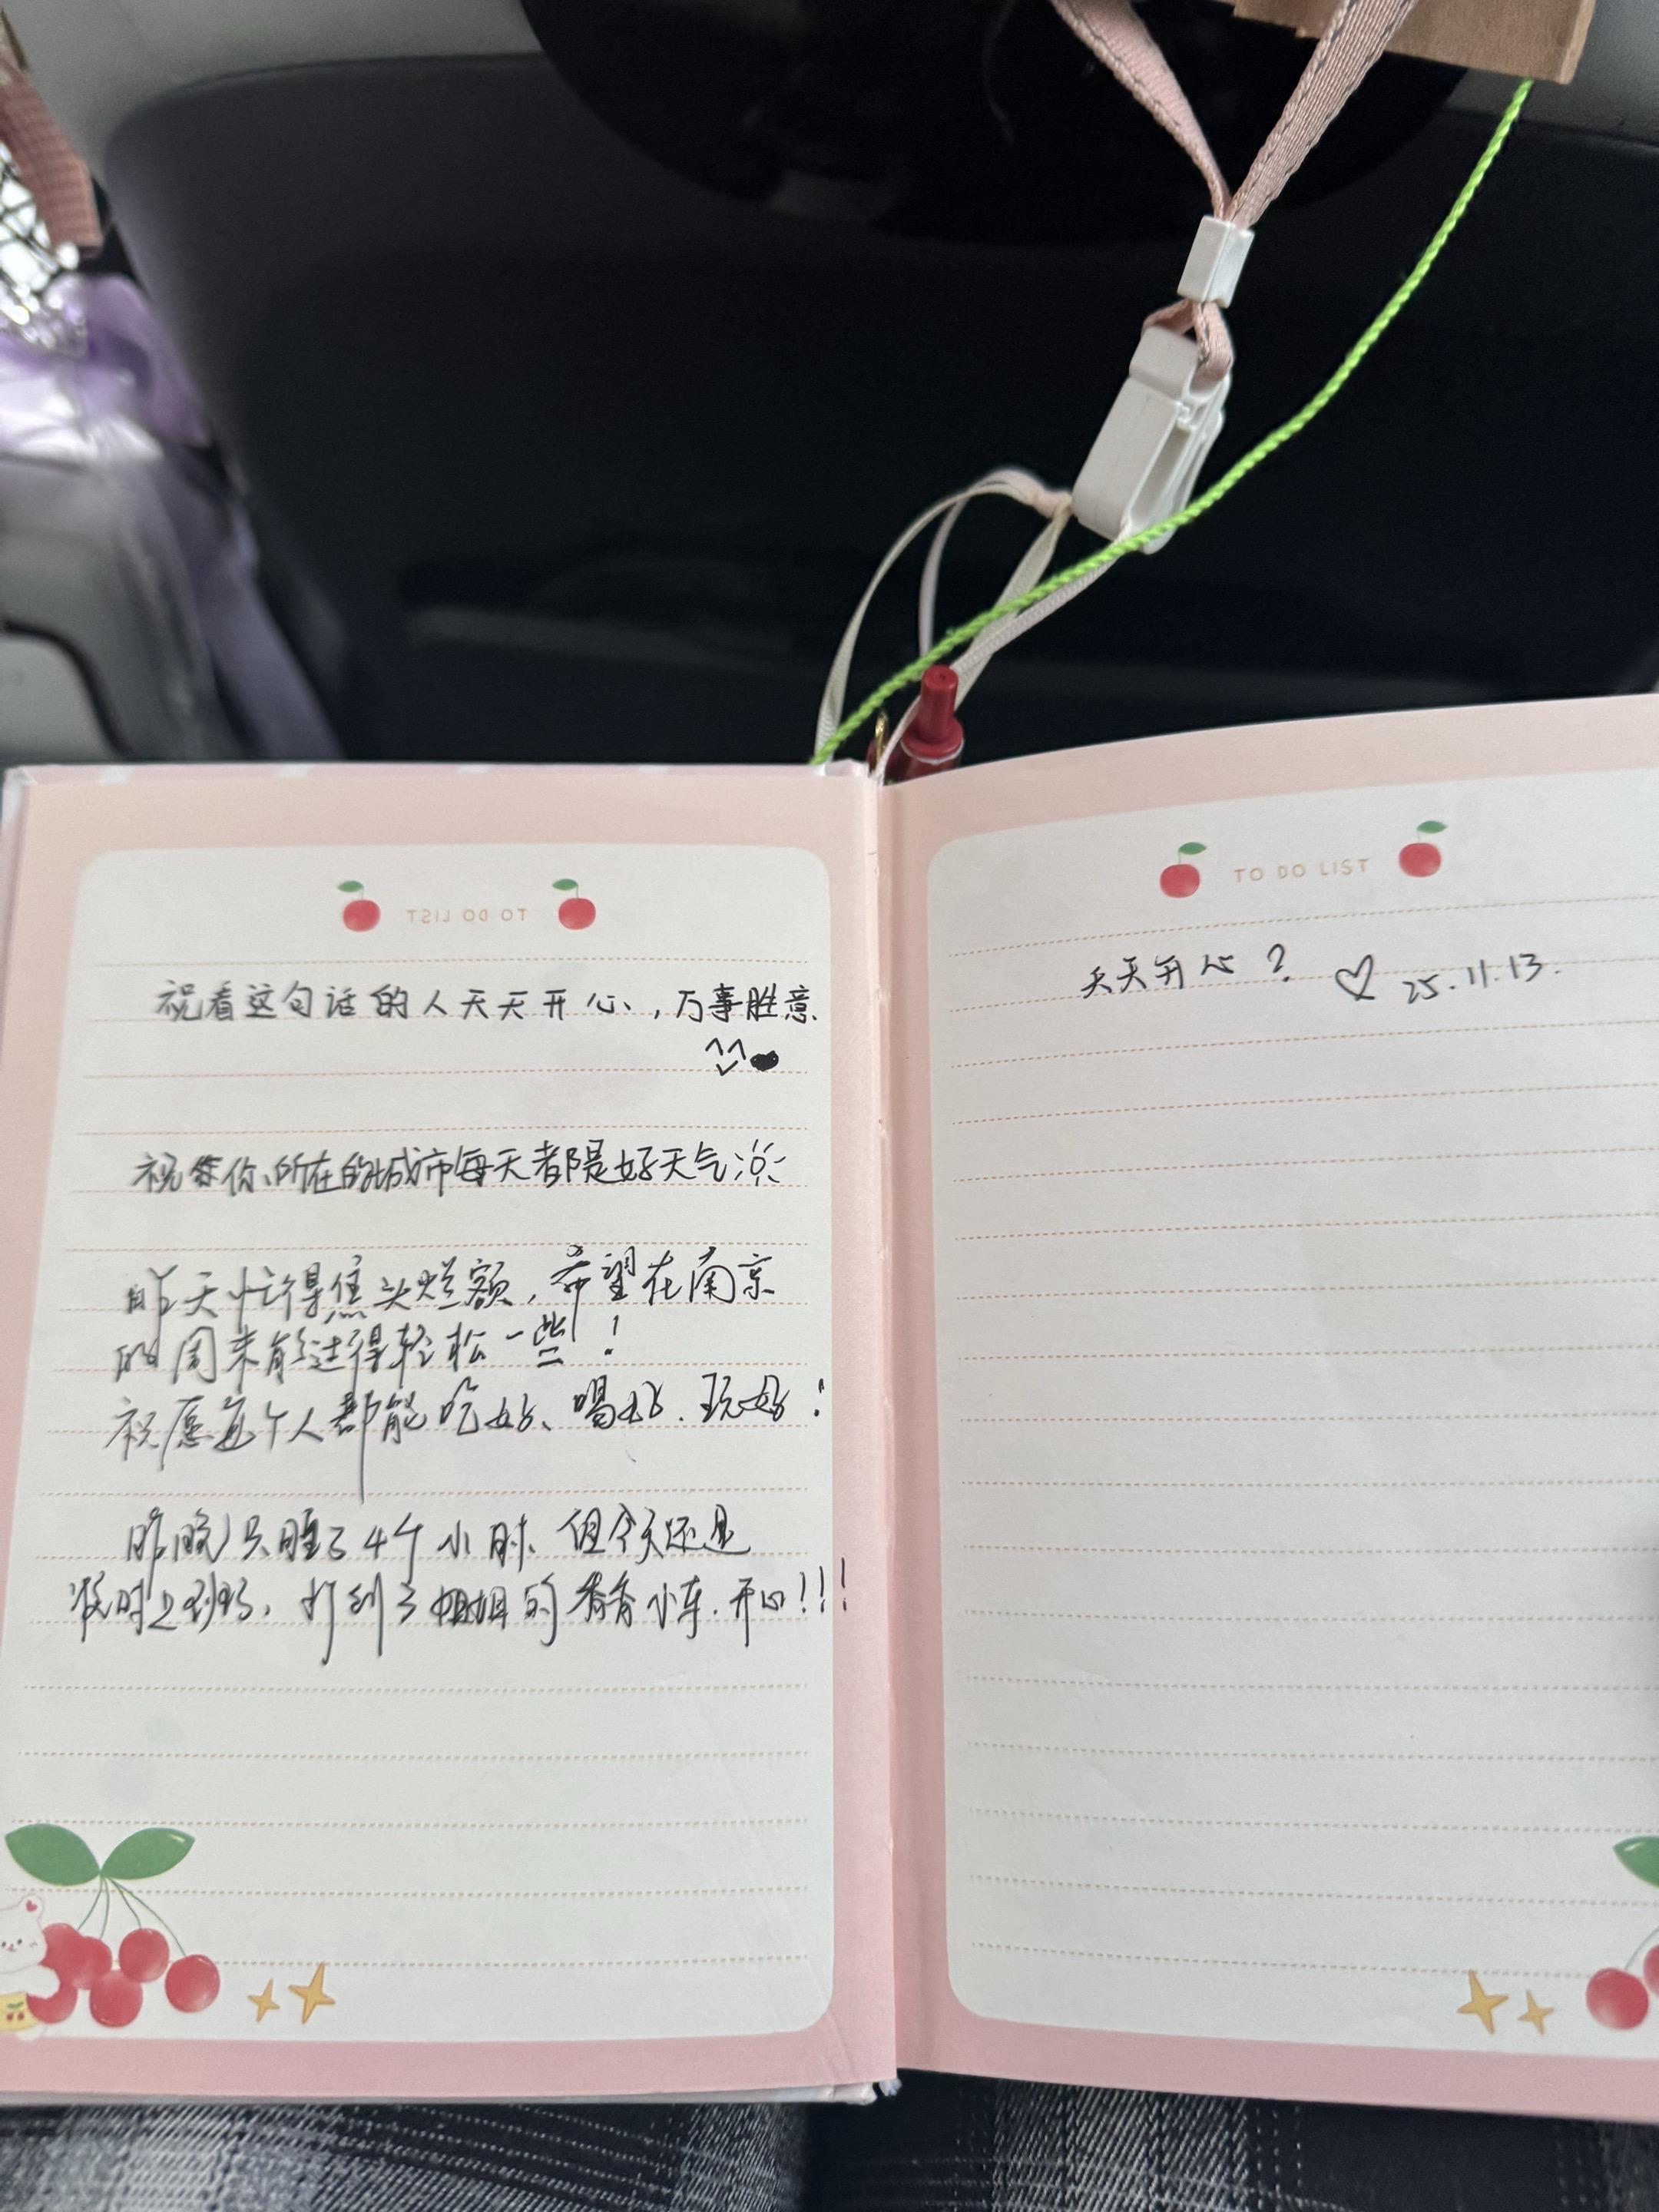 TO DO LIST
祝看这句话的人天天开心,万事胜意
祝你所在的城市每天都是好天气
昨天忙得焦头烂额,希望在南京
的周末能过得轻松一些!
祝愿每个人都能吃好、喝好、玩好!
昨晚只睡了4个小时、但今天还是
准时上到班、打到了姐姐的香香小车、开心!!!
TO DO LIST
天天开心? ♡ 25.11.13.